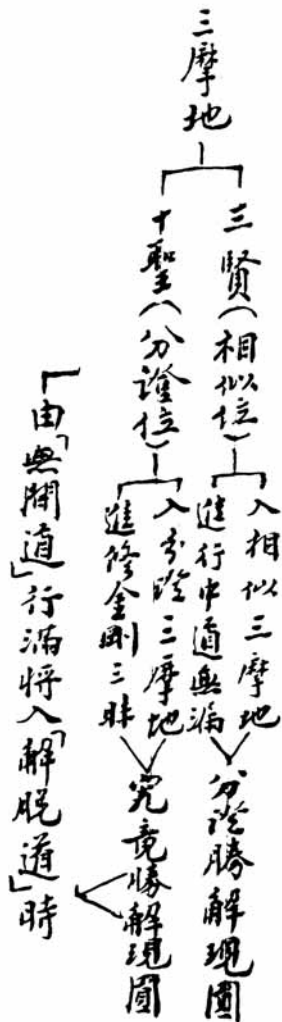 三摩地
三賢（相似位）
入相似三摩地
進行中道無漏
分證勝解現圓
十聖（分證位）
入分證三摩地
進修金剛三昧
究竟勝解現圓
「由「無間道」行滿將入「解脫道」時